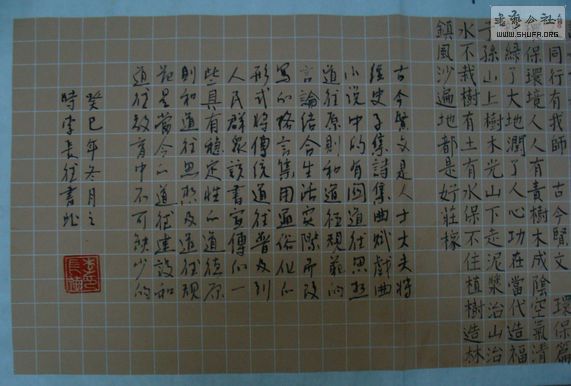 书艺公社
WWW.SHUFA.ORG
同行有我師 古今賢文 環保篇
保環境人人有責樹木成陰空氣清
綠了大地潤了人心功在當代造福
子孫山上樹木光山下走泥漿治山治
水不栽樹有土有水保不住植樹造林
鎮風沙遍地都是好莊稼
古今賢文是人士大夫將
經史子集詩集曲賦戲曲
小说中的有関道德思想
道德原則和道德規範的
言論结合生活实際所改
寫的格言集用通俗化的
形式將傳统道德普及到
人民群衆讀書宣傳的一
些具有穩定性的道德原
則和道德思想及道德規
范是當今的道德建設和
道德教育中不可缺少的
癸巳年冬月之
時李長征書